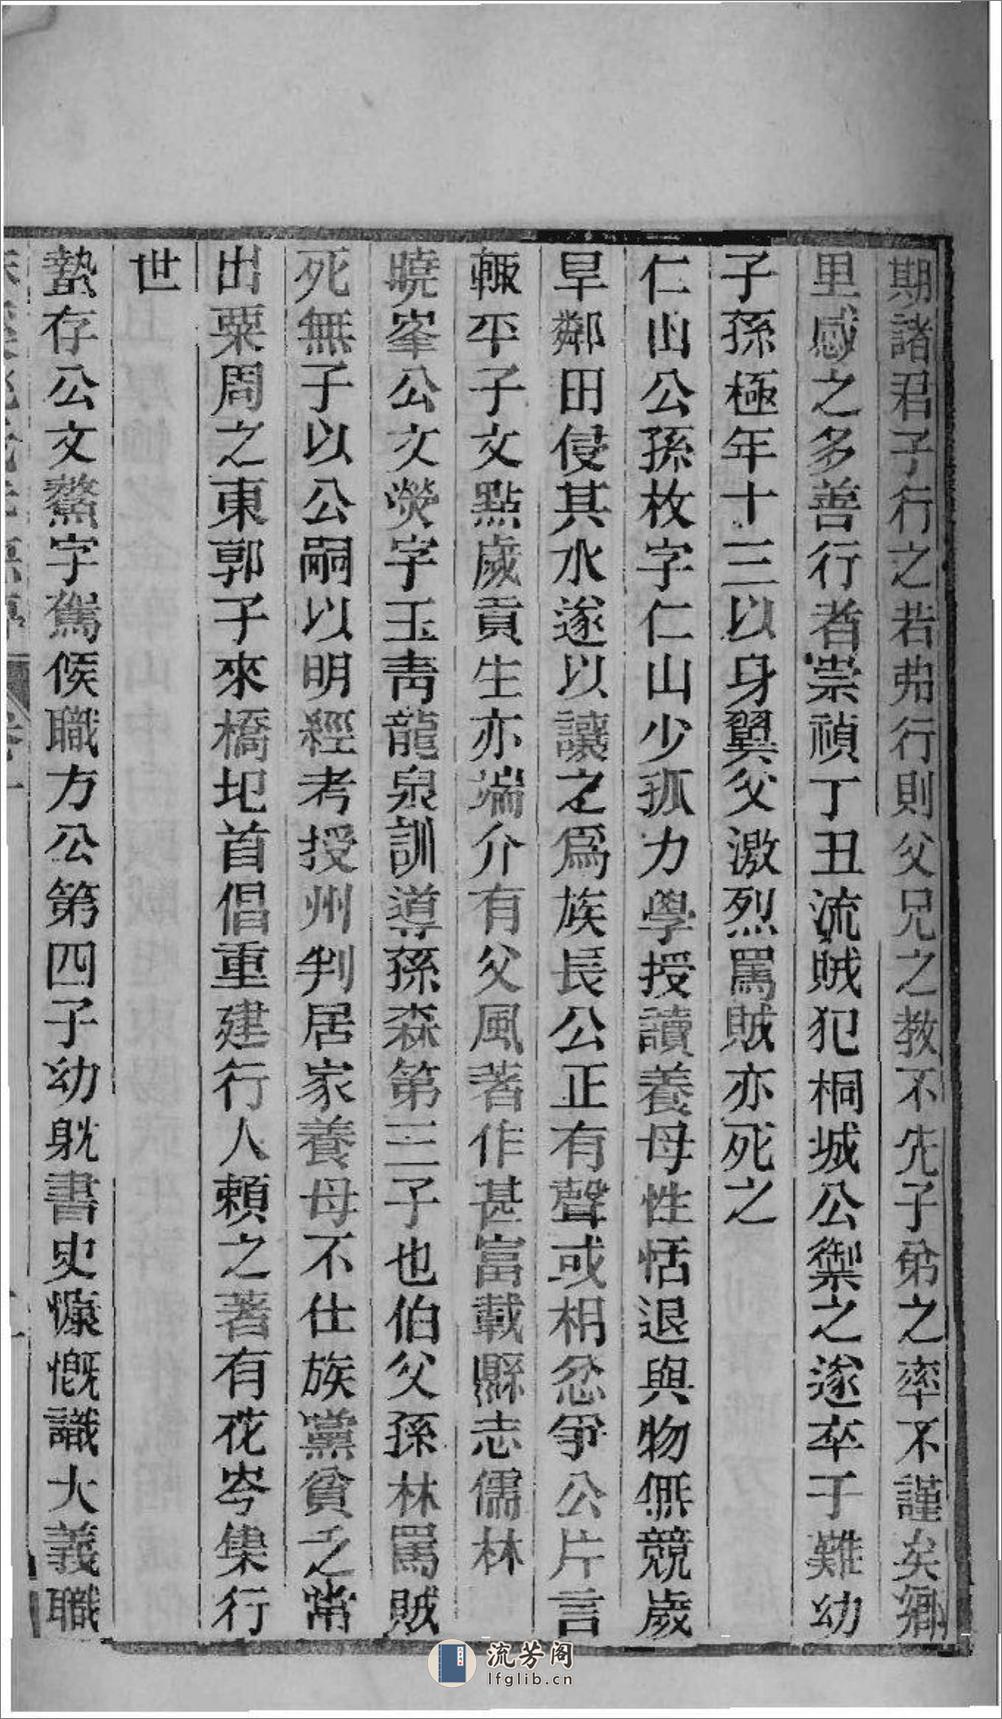 期諸君子行之若弗行則父兄之教不先子弟之率不謹矣鄉
里感之多善行者崇禎丁丑流賊犯桐城公禦之遂卒于難幼
子孫極年十三以身翼父激烈罵賊亦死之
仁山公孫枚字仁山少孤力學授讀養母性恬退與物無競歲
旱鄰田侵其水遂以讓之爲族長公正有聲或相忿爭公片言
輒平子文點歲貢生亦端介有父風著作甚富載縣志儒林
曉峯公文熒字玉青龍泉訓導孫森第三子也伯父孫林罵賊
死無子以公嗣以明經考授州判居家養母不仕族黨貧乏常
出粟周之東郭子來橋圯首倡重建行人賴之著有花岑集行
世
蟄存公文鰲字駕候職方公第四子幼躭書史慷慨識大義職
流芳阁
lfglib.cn